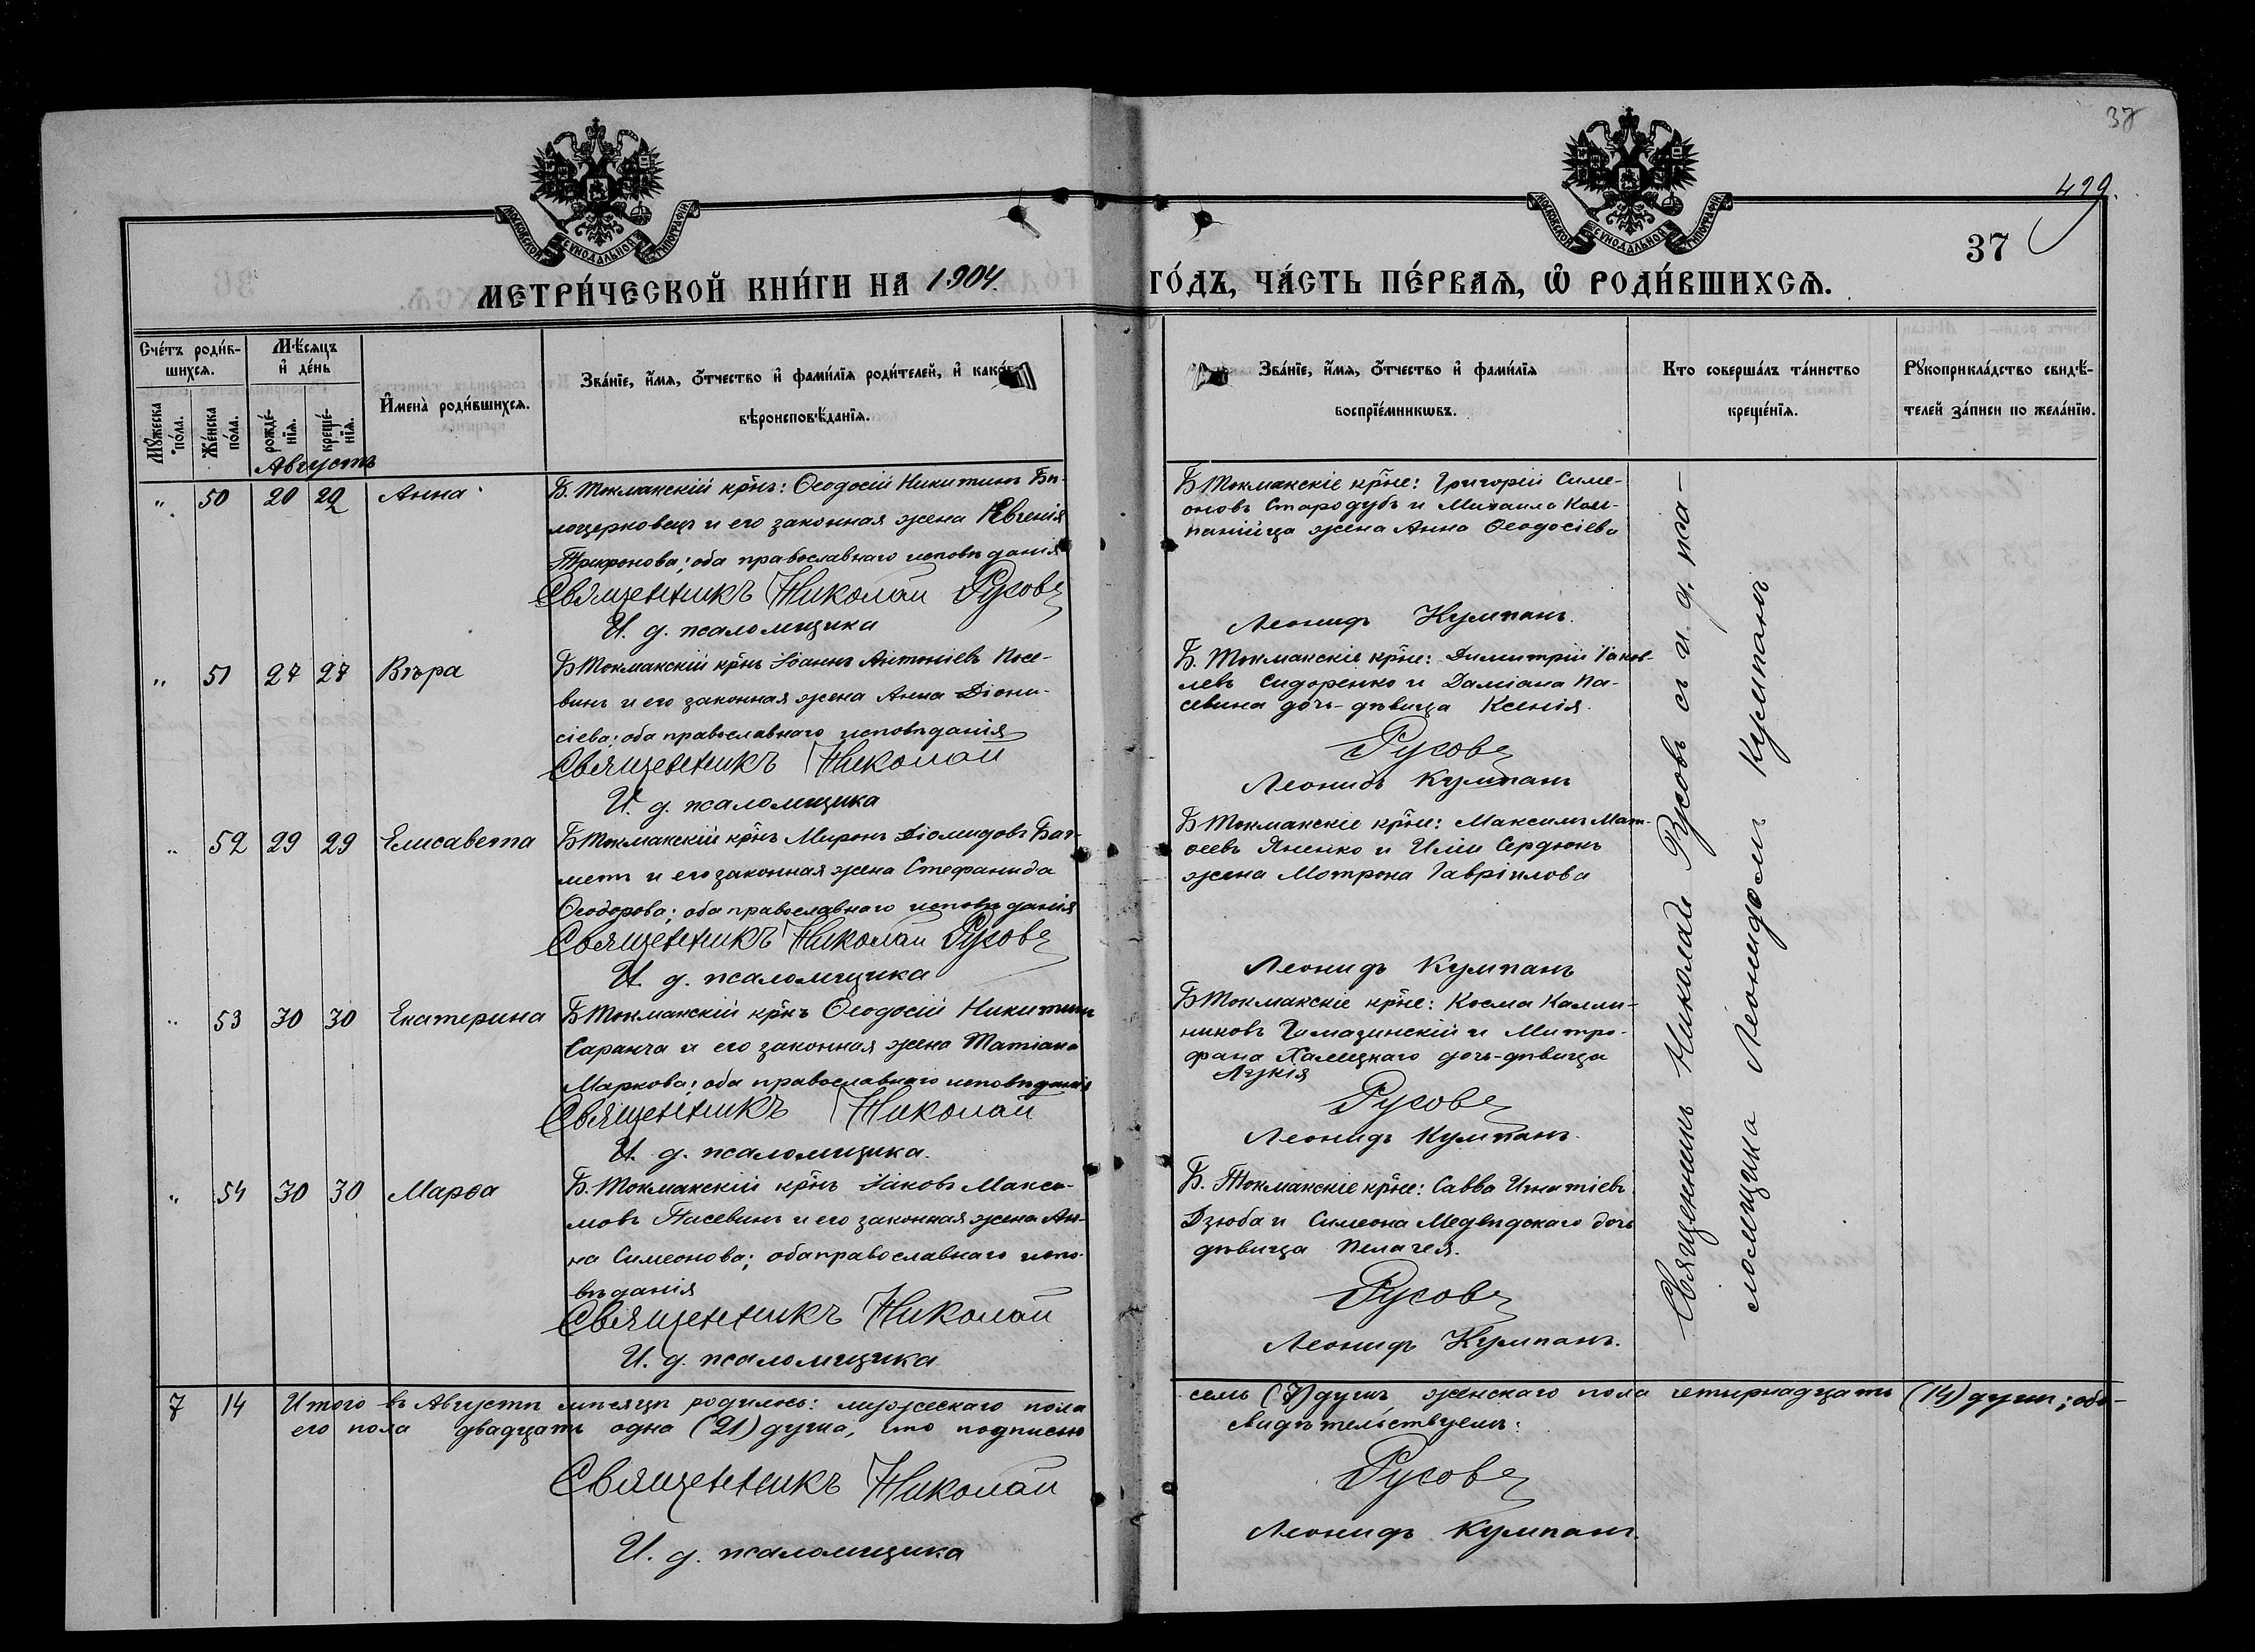 37
429.
37
МОСКОВСКОЙ СѴНОДАЛЬНОЙ ТИПОГРАФІИ
МОСКОВСКОЙ СѴНОДАЛЬНОЙ ТИПОГРАФІИ
МЕТРИ́ЧЕСКОЙ КНИ́ГИ НА 1904.
ГО́ДЪ, ЧА́СТЬ ПЕ́РВАѦ, Ѽ РОДИ́ВШИХСѦ.
Сче́тъ роди́в-
шихся.
Мꙋ́жеска по́ла.
Же́нска по́ла.
Мѣ́сяцъ
и҆ де́нь
рожде́-
нїя.
креще́-
нїя.
И҆мена̀ роди́вшихся.
Зва́нїе, и҆́мя, ѻ҆́тчество и҆ фами́лїя роди́телей, и҆ како́гѡ
вѣроисповѣ́данїя.
Зва́нїе, и҆́мя, ѻ҆́тчество и҆ фами́лїя
воспрїе́мникѡвъ.
Кто соверша́лъ та́инство
креще́нїя.
Рꙋкоприкла́дство свидѣ́-
телей за́писи по жела́нїю.
Августъ
" 50 20 22 Анна
Б. Токмакскій кр̃нъ: Ѳеодосій Никитинъ Бѣ-
лоцерковецъ и его законная жена Евгенія
Трифонова; оба православнаго исповѣданія
Священникъ Николай Русовъ
И. д. псаломщика
Б Токмакскіе кр̃не: Григорій Симе-
оновъ Стародубъ и Михаила Ком-
панійца жена Анна Ѳеодосіева
Леонидъ Кумпанъ.
" 51 27 27 Вѣра
Б Токмакскій кр̃нъ Іоаннъ Антоніевъ Посе-
винъ и его законная жена Анна Діони-
сіева; оба православнаго исповѣданія
Священникъ Николай
И. д. псаломщика
Б. Токмакскіе кр̃не: Димитрій Іаков-
левъ Сидоренко и Даміана Па-
севина дочь-дѣвица Ксенія.
Русовъ
Леонидъ Кумпанъ
" 52 29 29 Елисавета
Б Токмакскій кр̃нъ Миронъ Діомидовъ Баг-
метъ и его законная жена Стефанида
Ѳеодорова; оба православнаго исповѣданія
Священникъ Николай Русовъ
И. д. псаломщика
Б Токмакскіе кр̃не: Максимъ Мат-
ѳеевъ Яненко и Иліи Сердюкъ
жена Мотрона Гавріилова
Леонидъ Кумпанъ
" 53 30 30 Екатерина
Б Токмакскій кр̃нъ Ѳеодосій Никитинъ
Саранча и его законная жена Татіана
Маркова; оба православнаго исповѣданія
Священникъ Николай
И. д. псаломщика.
Б Токмакскіе кр̃не: Косма Калли-
никовъ Гамазинскій и Митро-
фана Халецкаго дочь-дѣвица
Русовъ
Леонидъ Кумпанъ.
" 54 30 30 Марѳа
Б. Токмакскій кр̃нъ Іаковъ Макси-
мовъ Пасевинъ и его законная жена Ан-
на Симеонова; оба православнаго испо-
вѣданія
Священникъ Николай
И. д. псаломщика
Б. Токмакскіе кр̃не: Савва Игнатіевъ
Дзюба и Симеона Медвѣдскаго дочь
дѣвица Пелагея.
Русовъ
Леонидъ Кумпанъ.
Священникъ Николай Русовъ съ и. д. пса-
ломщика Леонидомъ Кумпанъ
7 14 Итого въ Августѣ мѣсяцѣ родилось: мужескаго пола семь (7) душъ женскаго пола четырнадцать (14) душъ; обо-
его пола двадцать одна (21) душа, что подписью свидѣтельствуемъ:
Священникъ Николай Русовъ
И. д. псаломщика Леонидъ Кумпанъ.